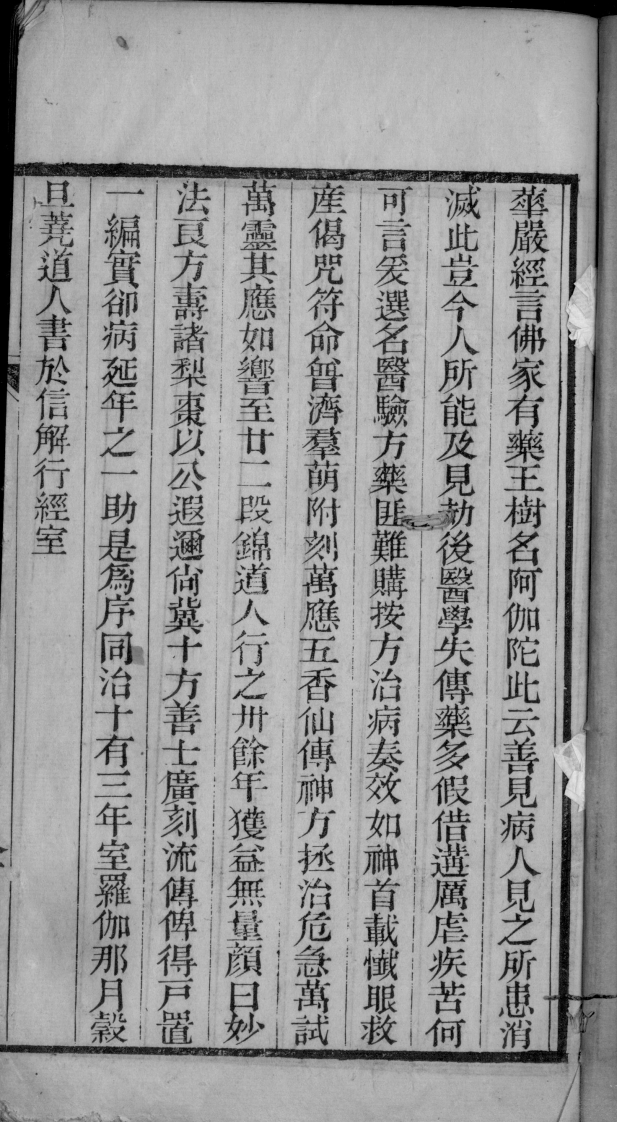 華嚴經言佛家有藥王樹名阿伽陀此云善見病人見之所患消
滅此豈今人所能及見劫後醫學失傳藥多假借遘厲虐疾苦何
可言爰選名醫驗方藥匪難購按方治病奏效如神首載懺眼救
産偈咒符命普濟羣萌附刻萬應五香仙傳神方拯治危急萬試
萬靈其應如響至廿二段錦道人行之卅餘年獲益無量顏曰妙
法良方壽諸梨棗以公遐邇尙冀十方善士廣刻流傳俾得戸置
一編實卻病延年之一助是爲序同治十有三年室羅伽那月穀
旦蕘道人書於信解行經室